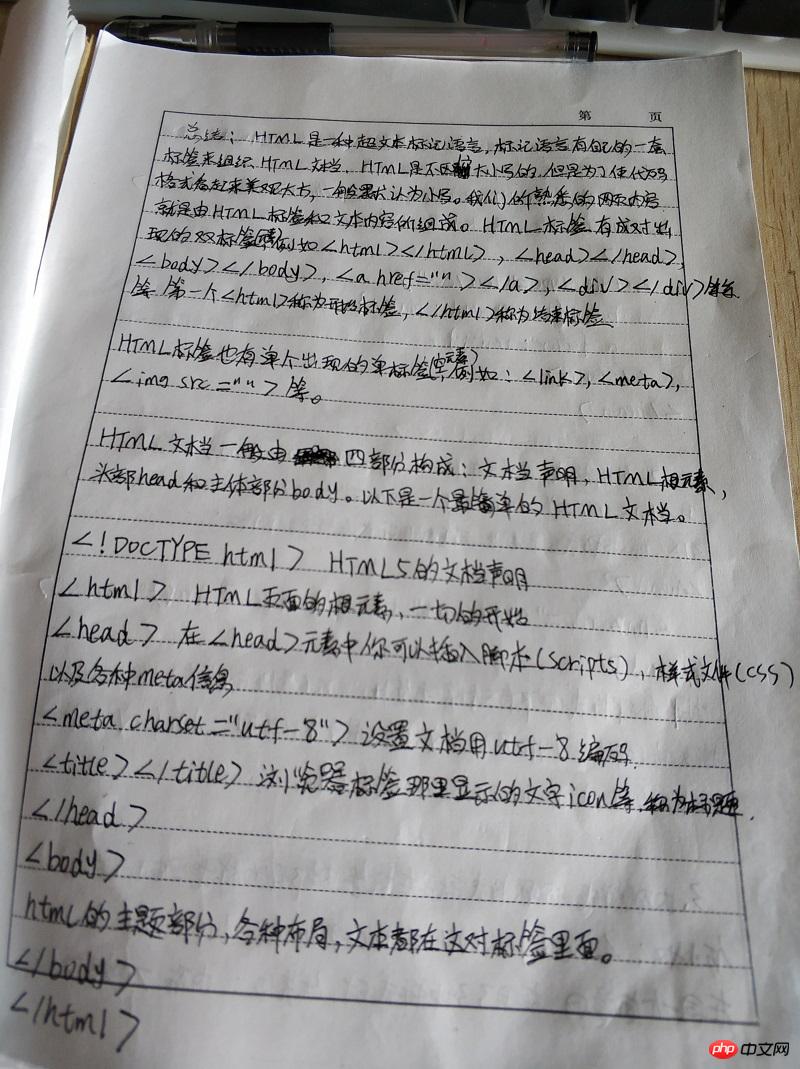 第 页
总结：HTML是一种超文本标记语言,标记语言有自己的一套
标签来组织HTML文档。HTML是不区分大小写的,但是为了使代码
格式看起来美观大方,一般默认为小写。我们所熟悉的网页内容
就是由HTML标签和文本内容所组成。HTML标签有成对出
现的双标签 例如<html></html>,<head></head>,
<body></body>,<a href=""></a>,<div></div>等
等 第一个<html>称为开始标签,</html>称为结束标签
HTML标签也有单个出现的单标签(空元素)例如：<link>,<meta>,
<img src="">等。
HTML文档一般由 四部分构成：文档声明,HTML根元素,
头部head和主体部分body。以下是一个最简单的HTML文档。
<!DOCTYPE html> HTML5的文档声明
<html> HTML页面的根元素,一切的开始
<head> 在<head>元素中你可以插入脚本(scripts),样式文件(css)
以及各种meta信息
<meta charset="utf-8">设置文档用utf-8编码.
<title></title>浏览器标签那里显示的文字icon等,称为标题.
</head>
<body>
html的主题部分,各种布局,文本都在这对标签里面。
</body>
</html>
php 中文网